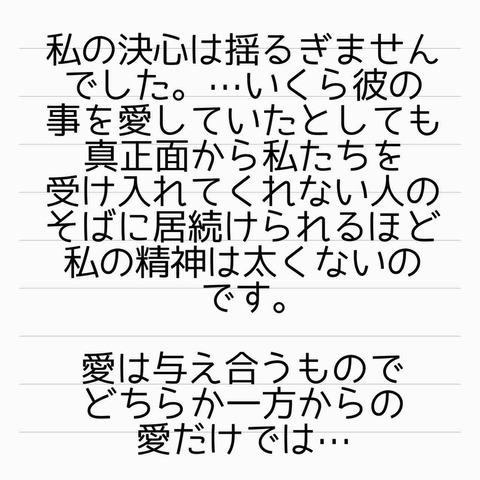 私の決心は揺るぎません
でした。…いくら彼の
事を愛していたとしても
真正面から私たちを
受け入れてくれない人の
そばに居続けられるほど
私の精神は太くないの
です。
愛は与え合うもので
どちらか一方からの
愛だけでは…